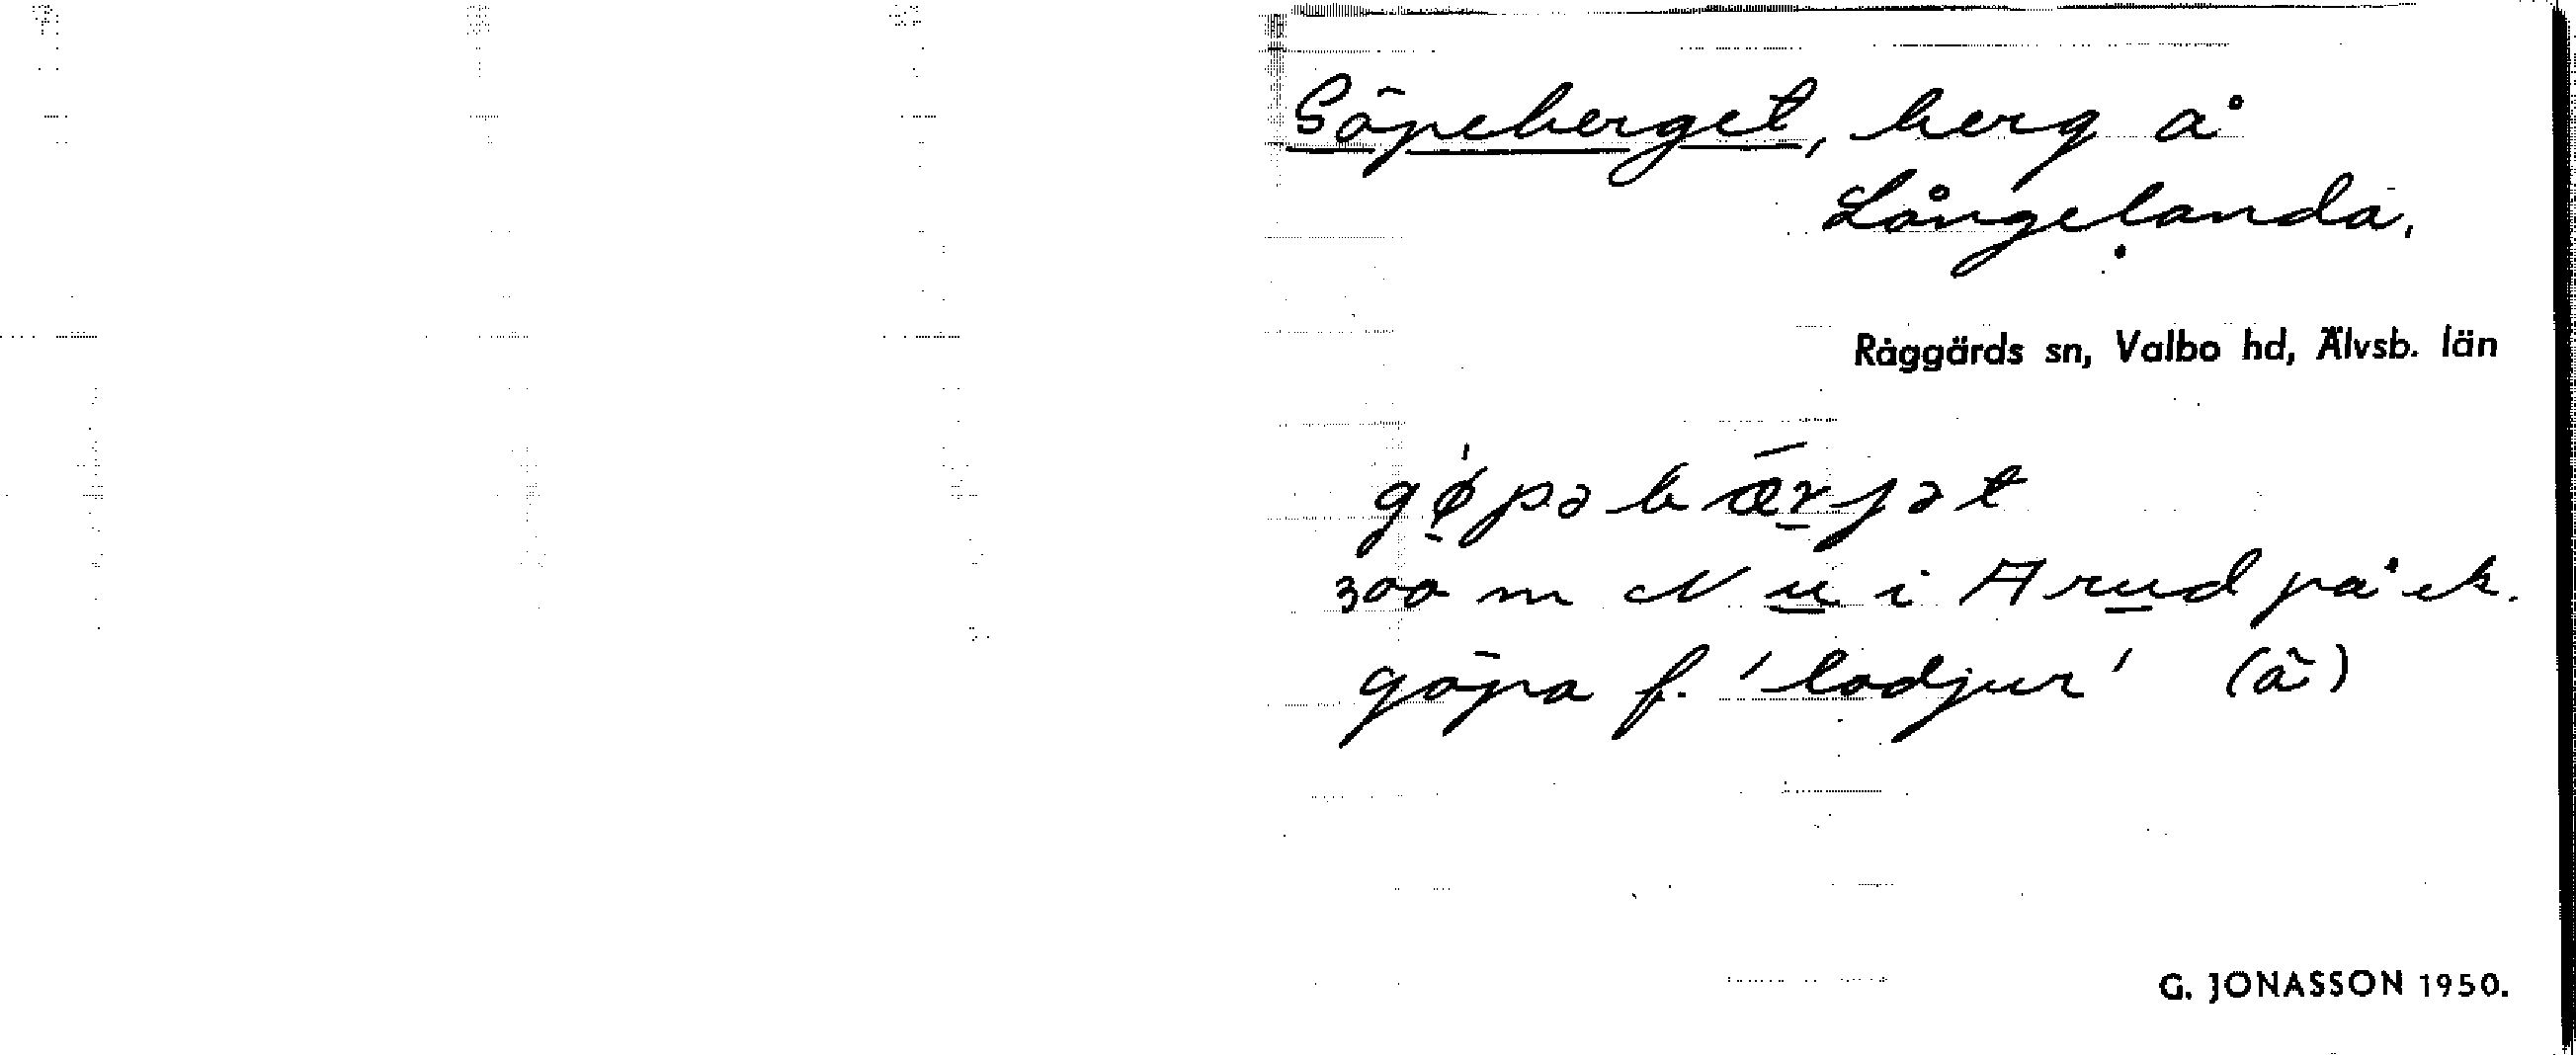 Göpeberget, berg å
Långelanda.
Råggärds sn, Valbo hd, Älvsb. län
gø̀pəbǽrjət
300 m N u i A rud på ek.
göpa f. 'lodjur' (ä)
G. JONASSON 1950.